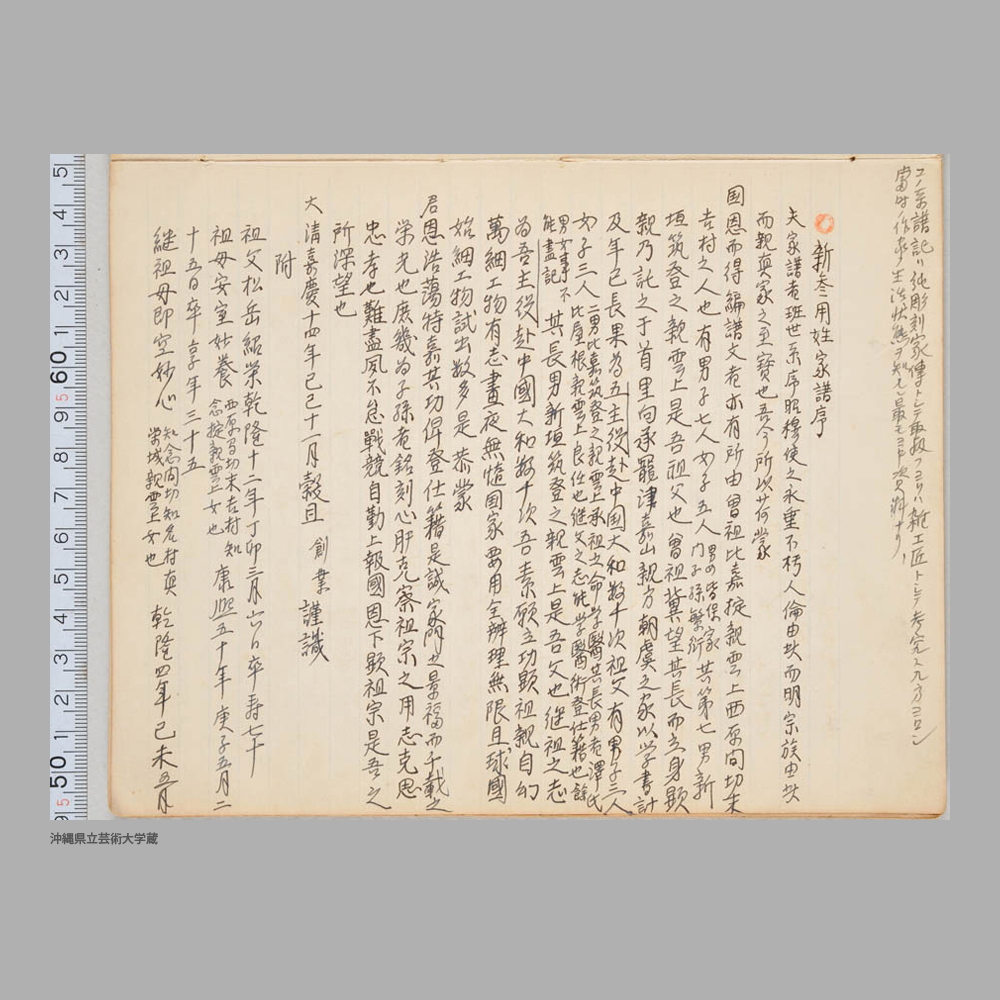 コノ系譜記ハ純彫刻家傳トシテ取扱フヨリハ雑工匠トシテ考究スル方ヨロシ
当時ノ作事生活状態ヲ知ルニ最モヨキ資料ナリ、
新参用姓家譜序
夫家譜者班世系序昭穆使之永重不朽人倫由此而明宗族由此
而親真家之至寶也吾今所以荷蒙
国恩而得編譜文者亦有所由曾祖比嘉掟親雲上西原間切末
吉村之人也有男子七人女子五人 男女皆保家門子孫繁衍 其第七男新
垣筑登之親雲上是吾祖父也曾祖冀望其長而立身顕
親乃託之于首里向承龍津嘉山親方朝虞之家以学書計
及年已長果為五主役赴中国大和数十次祖父有男子二人
女子三人 二男比嘉筑登之親雲上承祖立命学醫其長男者澤氏比屋根親雲上良住也継父之志能学醫術登仕籍也餘男女事不能盡記 其長男新垣筑登之親雲上是吾父也継祖之志
為吾主役赴中國大和数十次吾素願立功顕祖親自幻
萬細工物有志晝夜無惰国家要用全辦理無限且球國
始細工物試出数多是恭蒙
君恩浩蕩特嘉其功俾登仕籍是誠家門之景福而千載之
栄光也庶幾為子孫者銘刻心肝克察祖宗之用志克思
忠孝也難盡夙不怠戰競自勤上報國恩下顕祖宗是吾之
所深望也
大清嘉慶十四年己巳十一月穀旦 創業 謹識
附
祖父松岳紹栄乾隆十二年丁卯三月六日卒寿七十
祖母安室妙養 西原間切末吉村知念掟親雲上女也 康熙五十年庚子五月二
十五日卒享年三十五
継祖母即空妙心 知念間切知名村真栄城親雲上女也 乾隆四年己未五月
沖縄県立芸術大学蔵